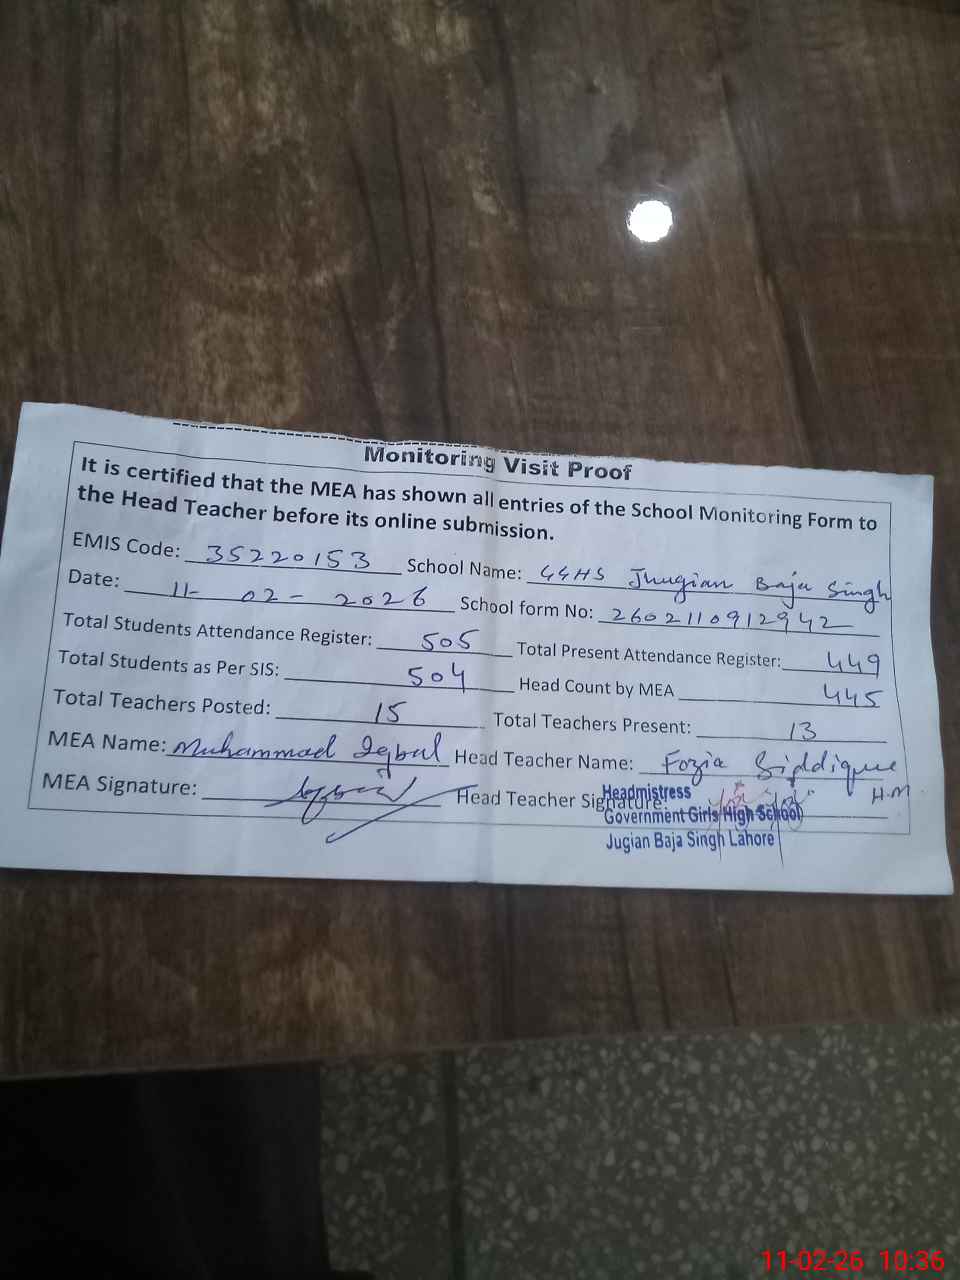 Monitoring Visit Proof
It is certified that the MEA has shown all entries of the School Monitoring Form to
the Head Teacher before its online submission.
EMIS Code: 35220153 School Name: GGHS Jhugian Baja Singh
Date: 11-02-2026 School form No: 2602110912942
Total Students Attendance Register: 505 Total Present Attendance Register: 449
Total Students as Per SIS: 504 Head Count by MEA 445
Total Teachers Posted: 15 Total Teachers Present: 13
MEA Name: Muhammad Iqbal Head Teacher Name: Fozia Siddique
H.M
MEA Signature: Head Teacher Signature:
Headmistress
Government Girls High School
Jugian Baja Singh Lahore
11-02-26 10:36